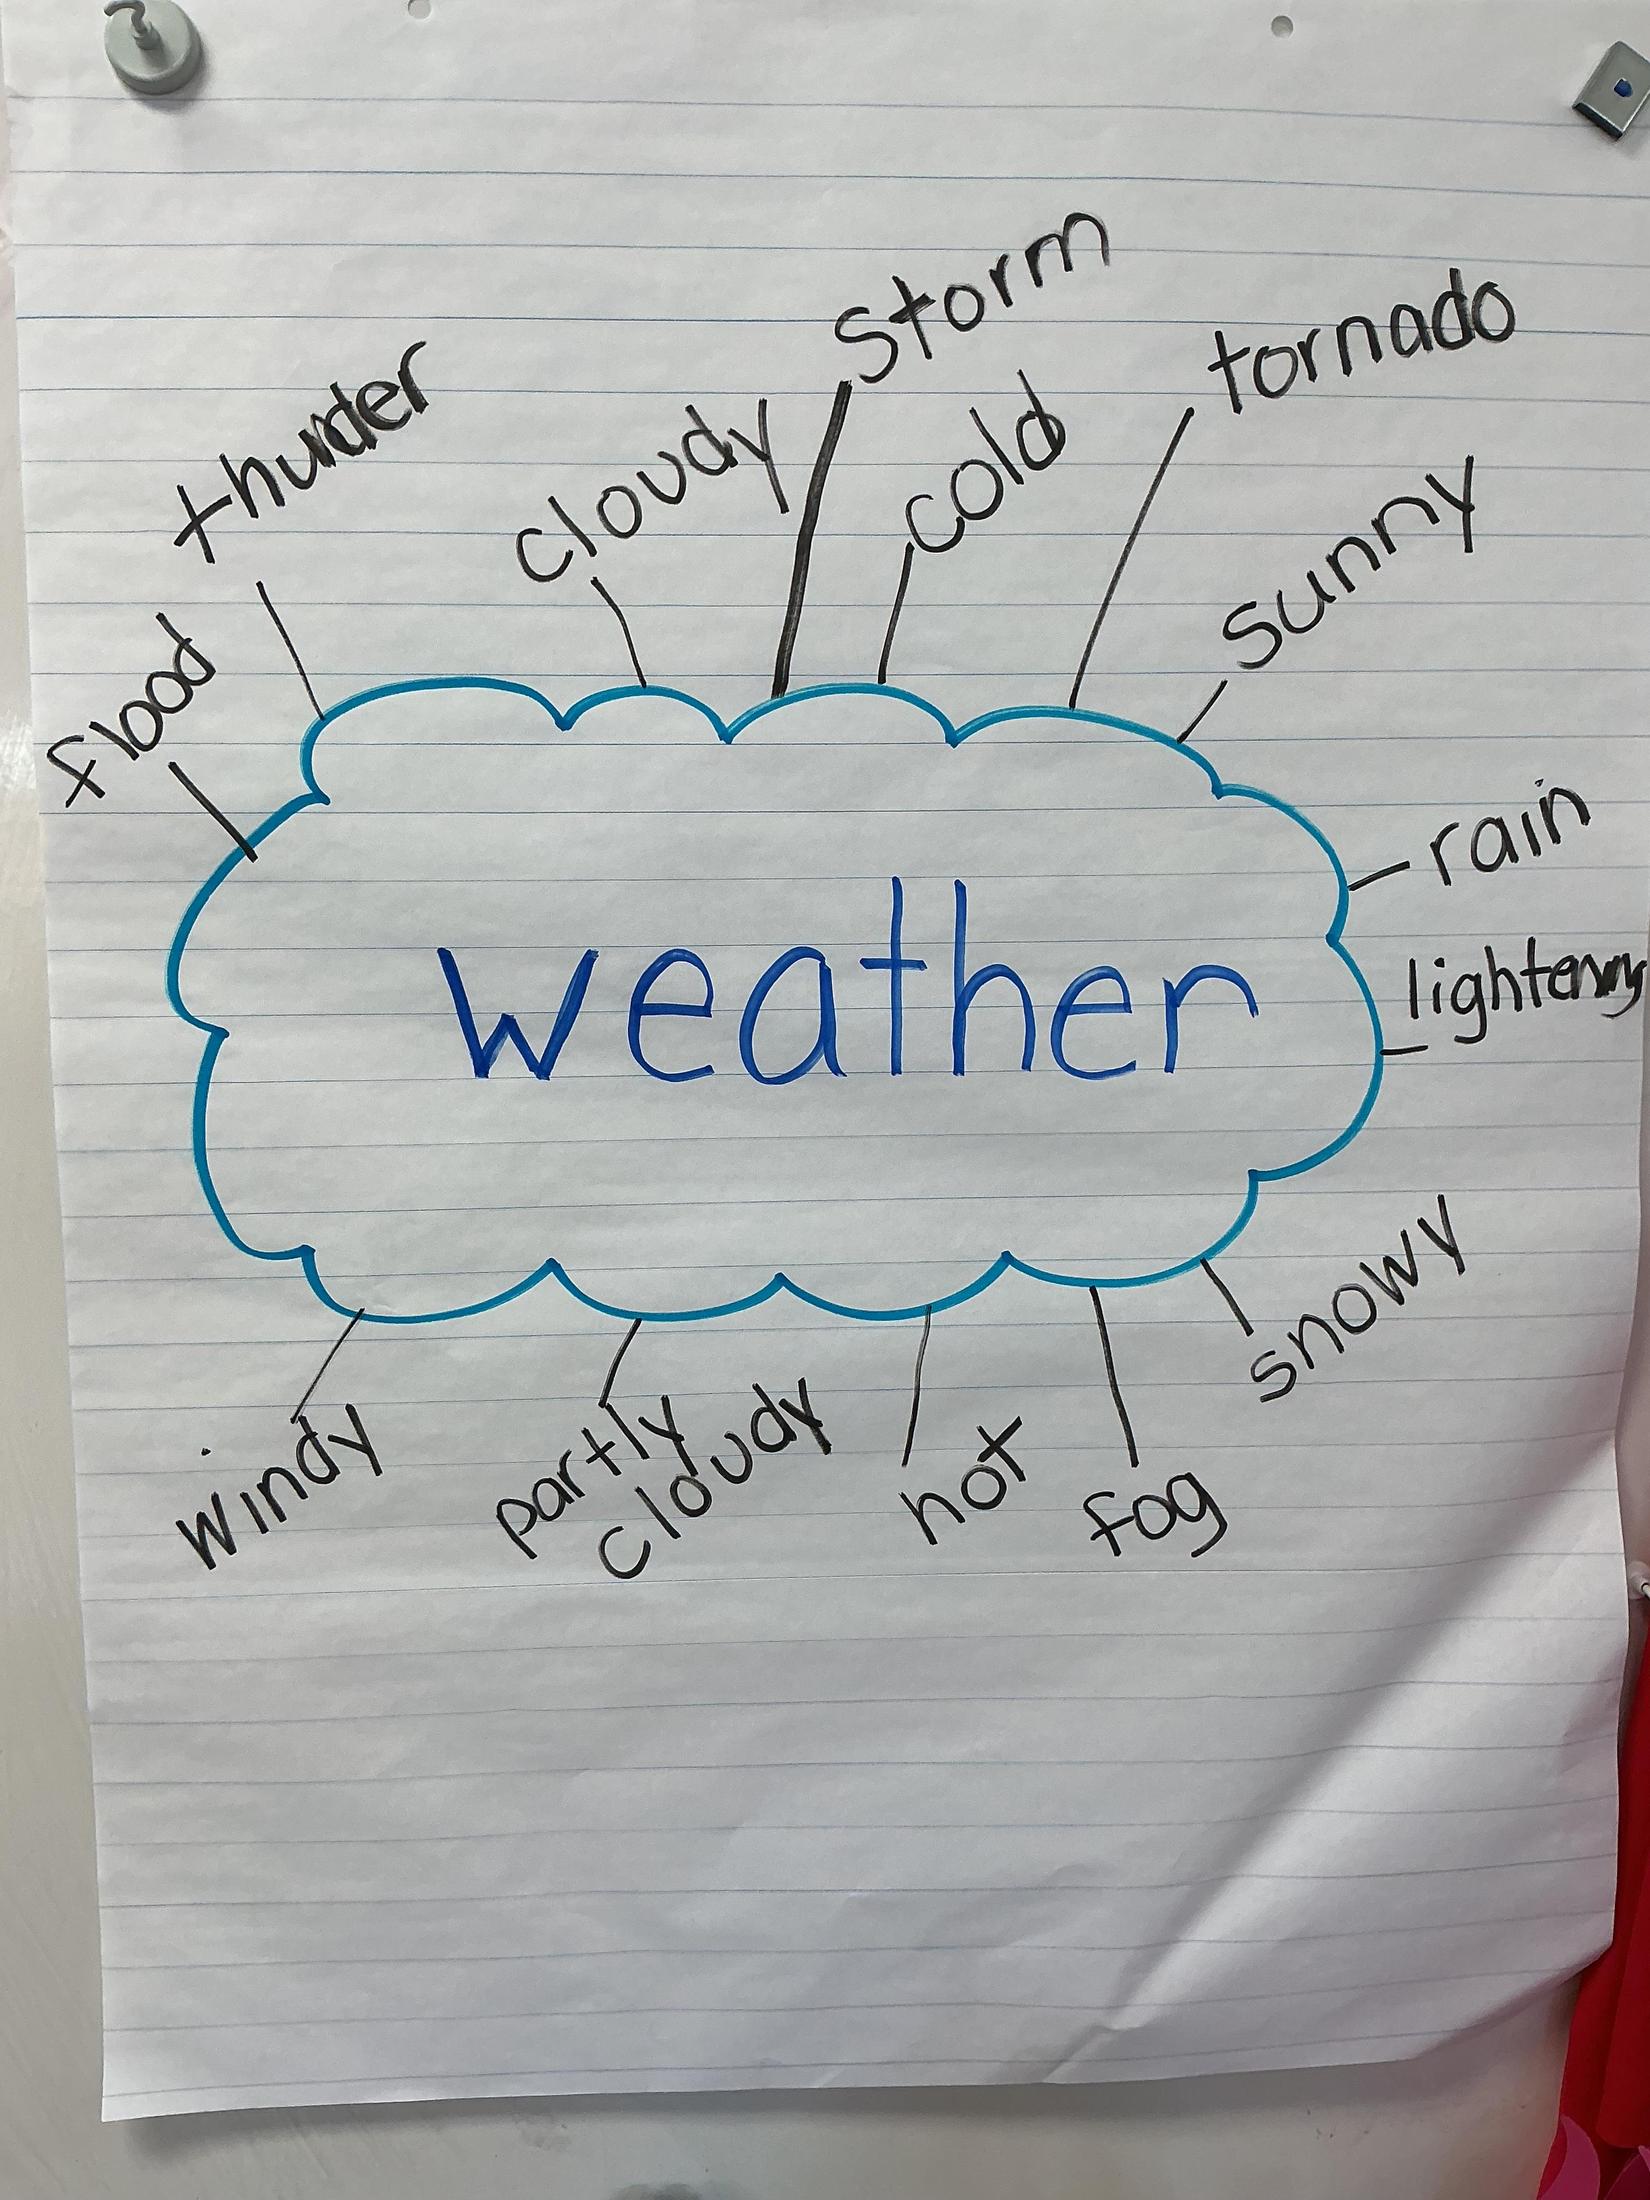 Storm
tornado
thunder
cloudy
cold
sunny
flood
rain
weather
lightening
snowy
windy
partly
cloudy
hot
fog